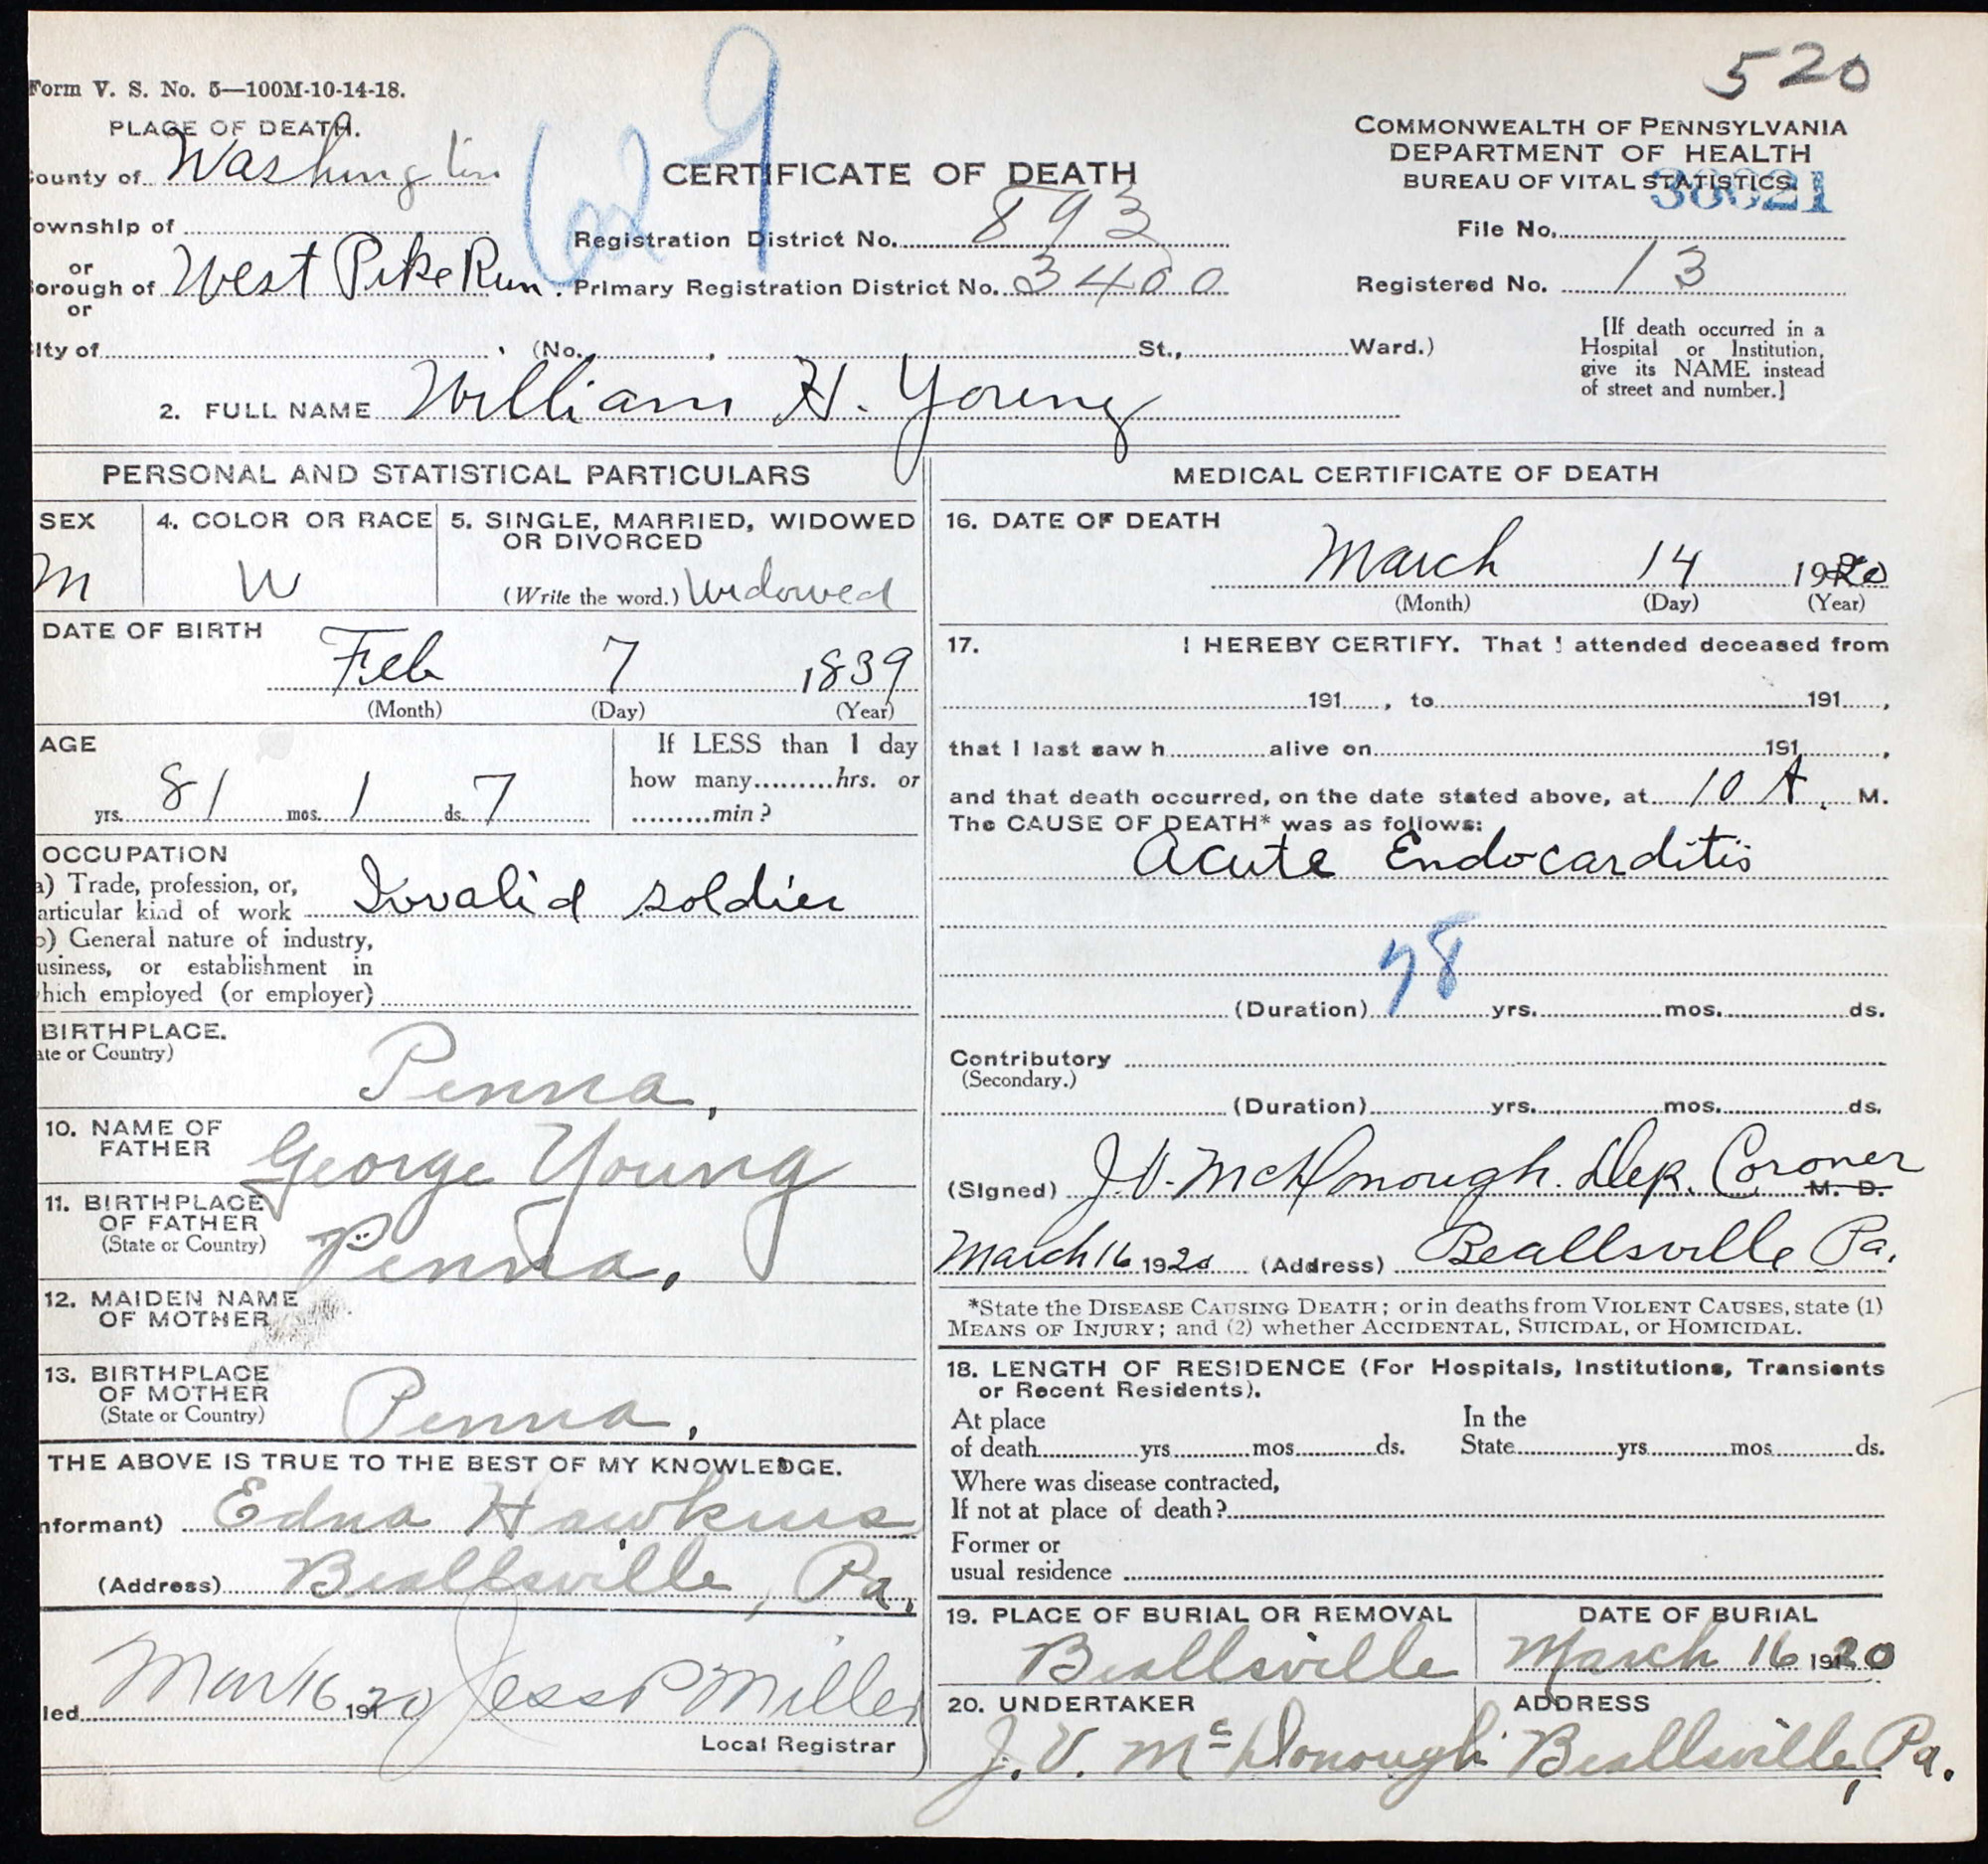 520
Form V. S. No. 5—100M-10-14-18.
PLACE OF DEATH.
ounty of Washington
ownship of
or
orough of West Pike Run.
or
ity of
(No. , St., Ward.)
CERTIFICATE OF DEATH
Registration District No. 893
Primary Registration District No. 3400
COMMONWEALTH OF PENNSYLVANIA
DEPARTMENT OF HEALTH
BUREAU OF VITAL STATISTICS
File No.
Registered No. 13
[If death occurred in a
Hospital or Institution,
give its NAME instead
of street and number.]
2. FULL NAME William H. Young
PERSONAL AND STATISTICAL PARTICULARS
SEX
M
4. COLOR OR RACE
W
5. SINGLE, MARRIED, WIDOWED
OR DIVORCED
(Write the word.) Widowed
DATE OF BIRTH
Feb 7 1839
(Month) (Day) (Year)
AGE
yrs. 81 mos. 1 ds. 7
If LESS than 1 day
how many hrs. or
min?
OCCUPATION
a) Trade, profession, or,
articular kind of work Invalid soldier
b) General nature of industry,
usiness, or establishment in
hich employed (or employer)
BIRTHPLACE.
ate or Country)
Penna,
10. NAME OF
FATHER
George Young
11. BIRTHPLACE
OF FATHER
(State or Country)
Penna,
12. MAIDEN NAME
OF MOTHER
13. BIRTHPLACE
OF MOTHER
(State or Country)
Penna,
THE ABOVE IS TRUE TO THE BEST OF MY KNOWLEDGE.
nformant) Edna Hawkins
(Address) Beallsville, Pa,
led Mar 16 1920 Jess P Miller
Local Registrar
MEDICAL CERTIFICATE OF DEATH
16. DATE OF DEATH
March 14 1920
(Month) (Day) (Year)
17. I HEREBY CERTIFY. That I attended deceased from
191 , to 191 ,
that I last saw h alive on 191 ,
and that death occurred, on the date stated above, at 10 A. M.
The CAUSE OF DEATH* was as follows:
Acute Endocarditis
78
(Duration) yrs. mos. ds.
Contributory
(Secondary.)
(Duration) yrs. mos. ds.
(Signed) J.V. McDonough. Dep. Coroner M. D.
March 16 1920 (Address) Beallsville Pa.
*State the DISEASE CAUSING DEATH; or in deaths from VIOLENT CAUSES, state (1)
MEANS OF INJURY; and (2) whether ACCIDENTAL, SUICIDAL, or HOMICIDAL.
18. LENGTH OF RESIDENCE (For Hospitals, Institutions, Transients
or Recent Residents).
At place
of death yrs mos ds.
In the
State yrs mos ds.
Where was disease contracted,
If not at place of death?
Former or
usual residence
19. PLACE OF BURIAL OR REMOVAL
Beallsville
DATE OF BURIAL
March 16 1920
20. UNDERTAKER
J. V. McDonough
ADDRESS
Beallsville, Pa.